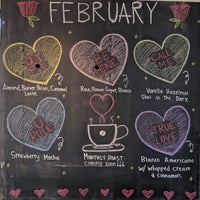 FEBRUARY
BE MINE
CALL ME
Almond, Butter Pecan, Caramel
Latte
Rose, Brown Sugar, Blanco
Vanilla Hazelnut
Shot in the Dark
U
RULE
TRUE
LOVE
Strawberry Mocha
MONTHLY ROAST
COMING SOON!!!
Blanco Americano
w/ whipped cream
& cinnamon